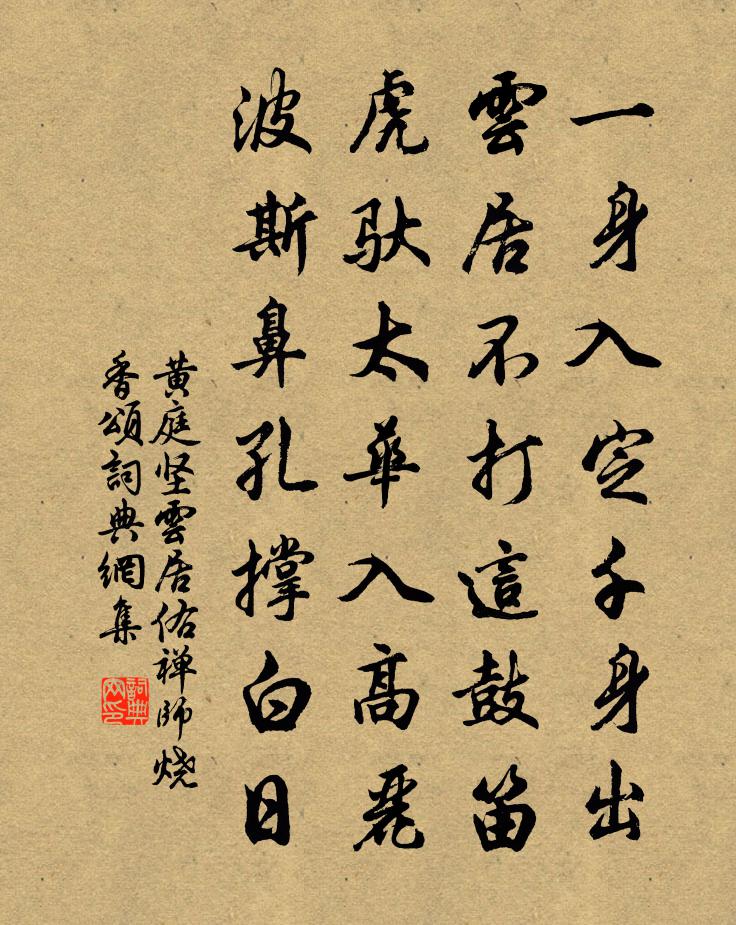 一身入定千身出
雲居不打這鼓笛
虎馱太華入高麗
波斯鼻孔撑白日
黄庭坚雲居佑禅師烧
香頌詞典網集
詞典
网印